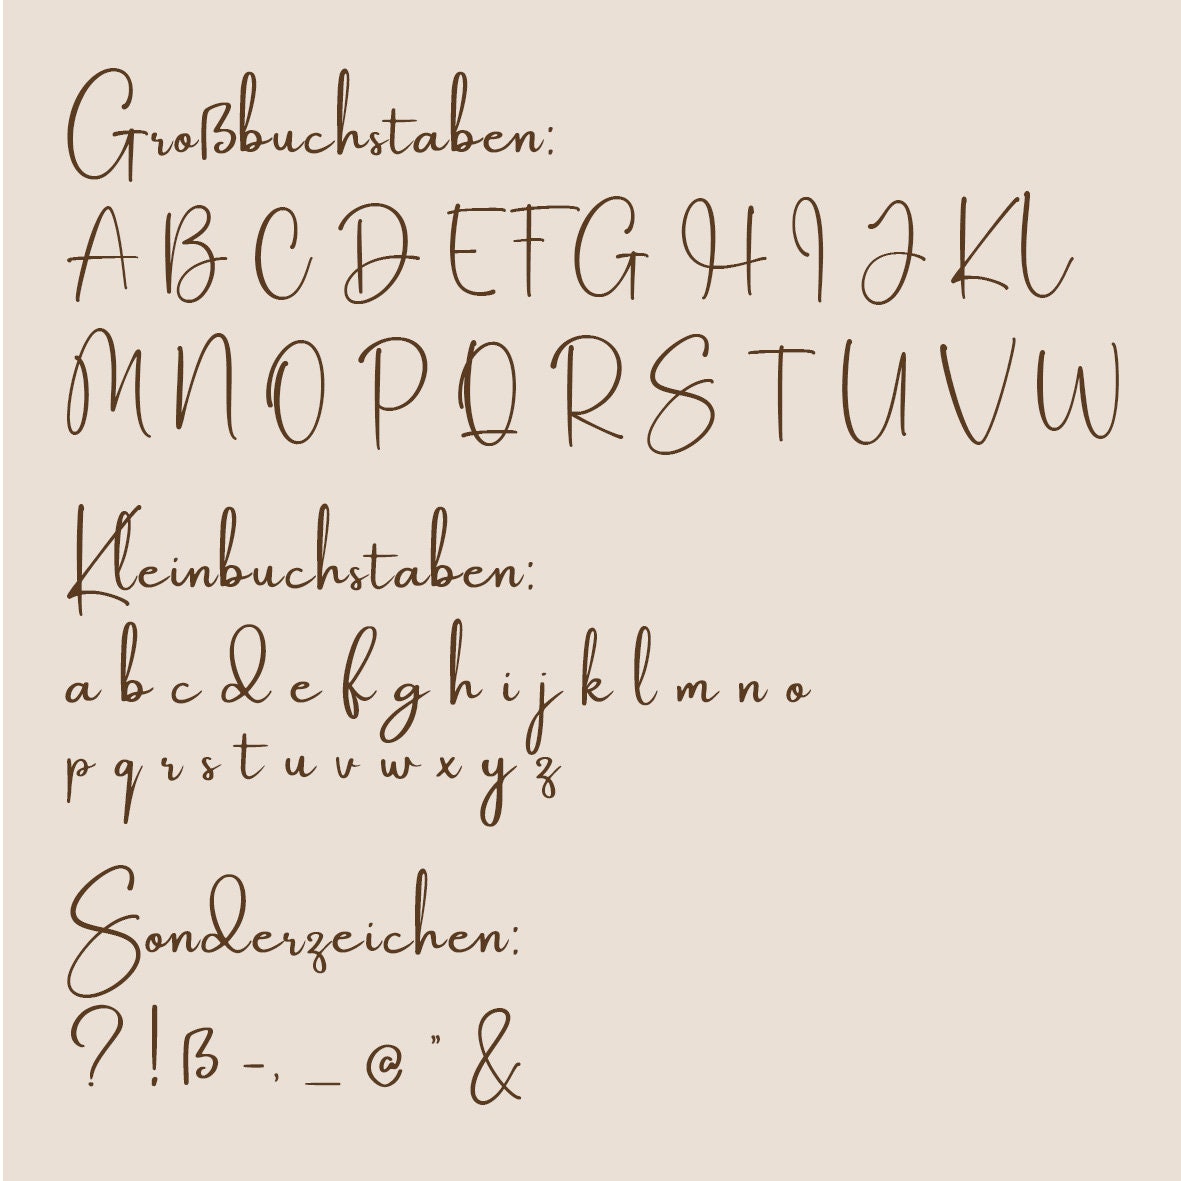 Großbuchstaben:
A B C D E F G H I J K L
M N O P Q R S T U V W
Kleinbuchstaben:
a b c d e f g h i j k l m n o
p q r s t u v w x y z
Sonderzeichen:
? ! ß - , _ @ " &